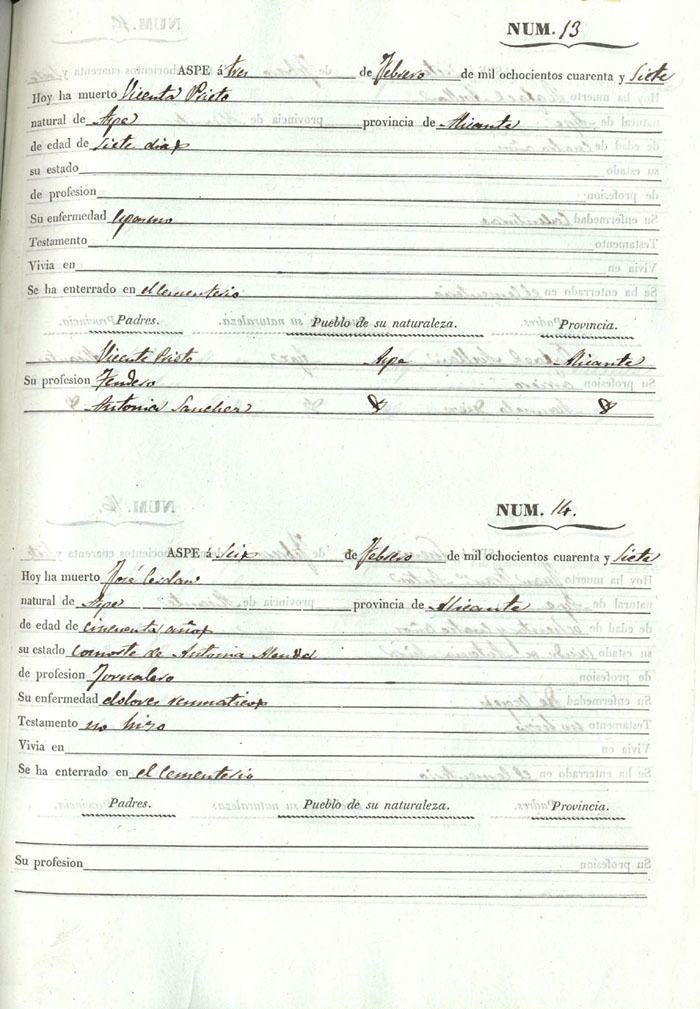 NUM. 13
ASPE á tres de Febrero de mil ochocientos cuarenta y Siete
Hoy ha muerto Vicenta Prieto
natural de Aspe provincia de Alicante
de edad de siete dias
su estado
de profesion
Su enfermedad espasmo
Testamento
Vivia en
Se ha enterrado en el Cementerio
Padres. Pueblo de su naturaleza. Provincia.
Vicente Prieto Aspe Alicante
Su profesion Tendero
Antonia Sanchez
NUM. 14.
ASPE á Seis de Febrero de mil ochocientos cuarenta y Siete
Hoy ha muerto José Cerdan
natural de Aspe provincia de Alicante
de edad de cincuenta años
su estado consorte de Antonia
de profesion Jornalero
Su enfermedad dolores reumaticos
Testamento no hizo
Vivia en
Se ha enterrado en el Cementerio
Padres. Pueblo de su naturaleza. Provincia.
Su profesion